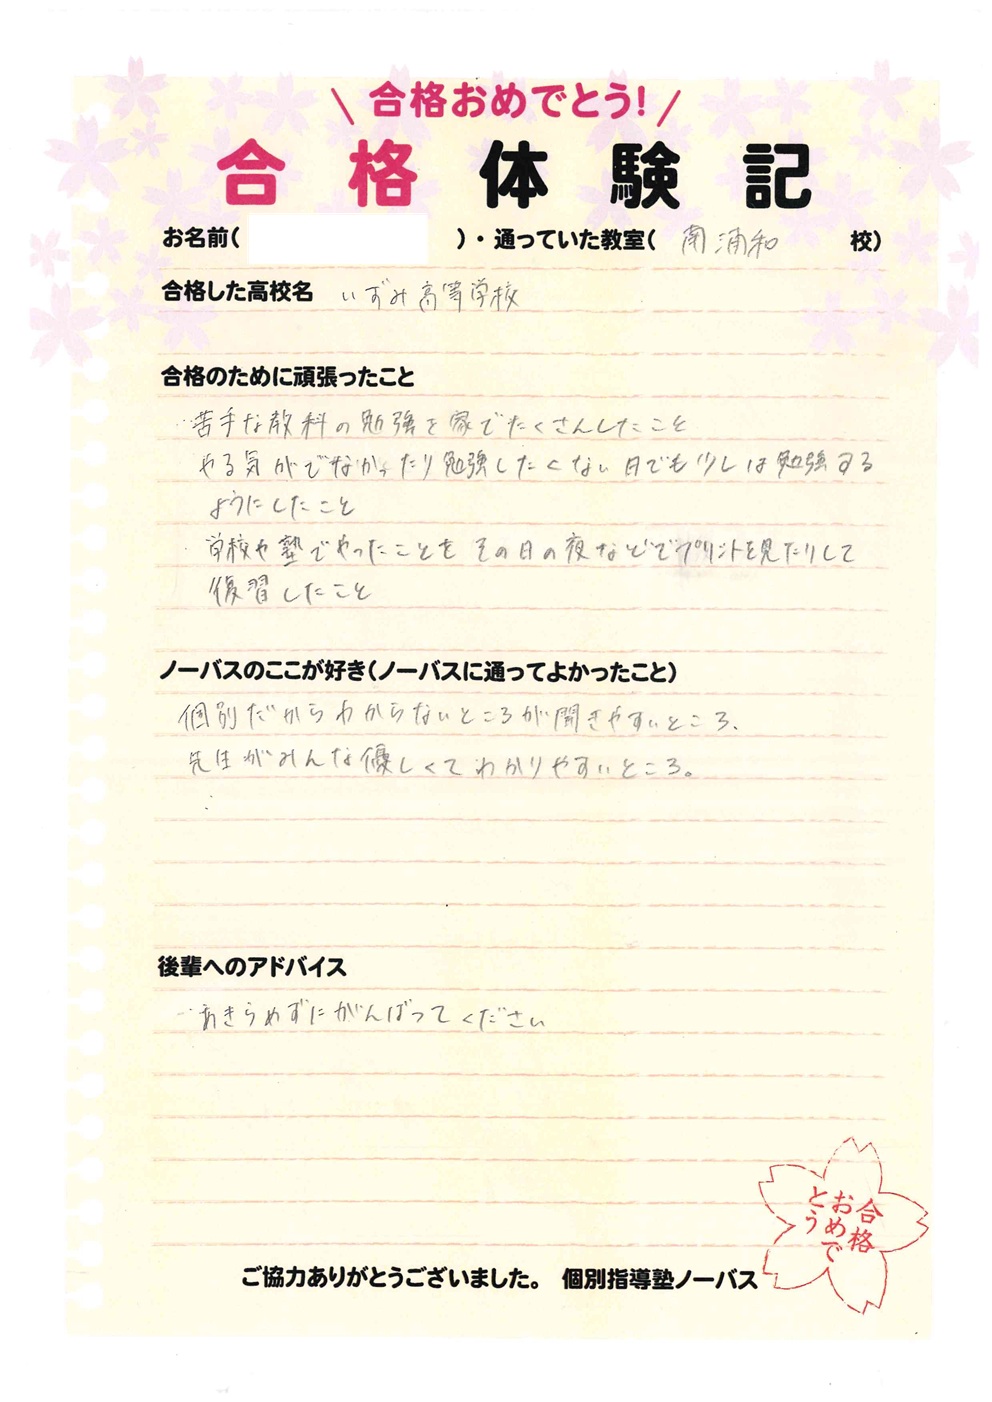 合格おめでとう!
合格体験記
お名前( )・通っていた教室( 南浦和 校)
合格した高校名 いずみ高等学校
合格のために頑張ったこと
・苦手な教科の勉強を家でたくさんしたこと
やる気がでなかったり勉強したくない日でも少しは勉強する
ようにしたこと
・学校や塾でやったことをその日の夜などでプリントを見たりして
復習したこと
ノーバスのここが好き(ノーバスに通ってよかったこと)
個別だからわからないところが聞きやすいところ、
先生がみんな優しくてわかりやすいところ。
後輩へのアドバイス
・あきらめずにがんばってください
合格
おめで
とう
ご協力ありがとうございました。 個別指導塾ノーバス